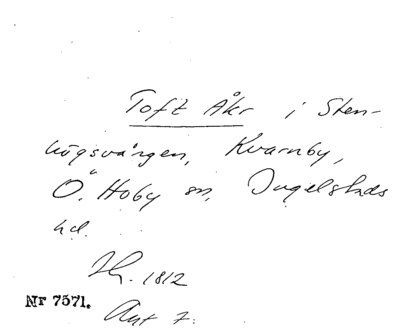 Toft Åkr i Sten-
högsvången, Kvarnby,
Ö. Hoby sn, Ingelstads
hd.
1812
Nr 7571.
Akt 7.